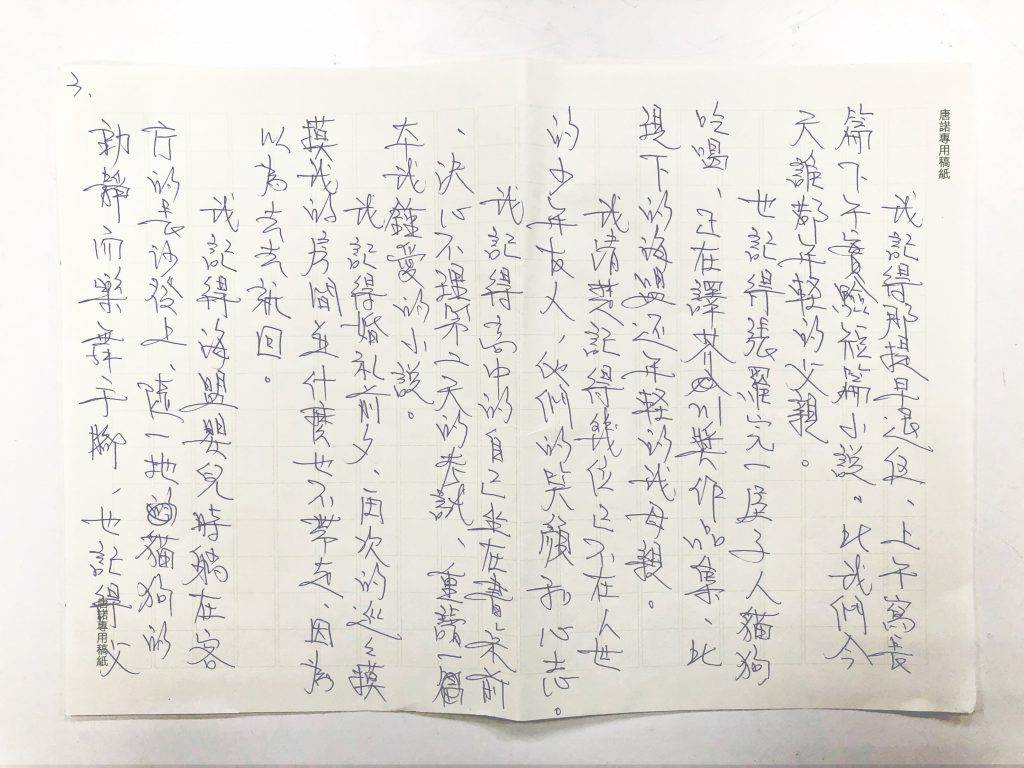 唐諾專用稿紙
我記得那提早退伍、上午寫長
篇下午賣臉短篇小說。比我們今
天誰都年輕的父親。
也記得張羅完一屋子人貓狗
吃喝、正在譯芥川獎作品集、比
現下的海盟還年輕的我母親。
我清楚記得幾位已不在人世
的少年友人,他們的笑顏和心志。
我記得高中的自己坐在書桌前
、決心不理第二天的考試、重讀一個
本我鍾愛的小說。
我記得婚禮前夕、再次的巡巡摸
摸我的房間並什麼也不帶走、因為
以為去去就回。
我記得海盟嬰兒時躺在客
厅的長沙發上、隨一地貓狗的
動靜而樂舞手腳、也記得父
3、
唐諾專用稿紙